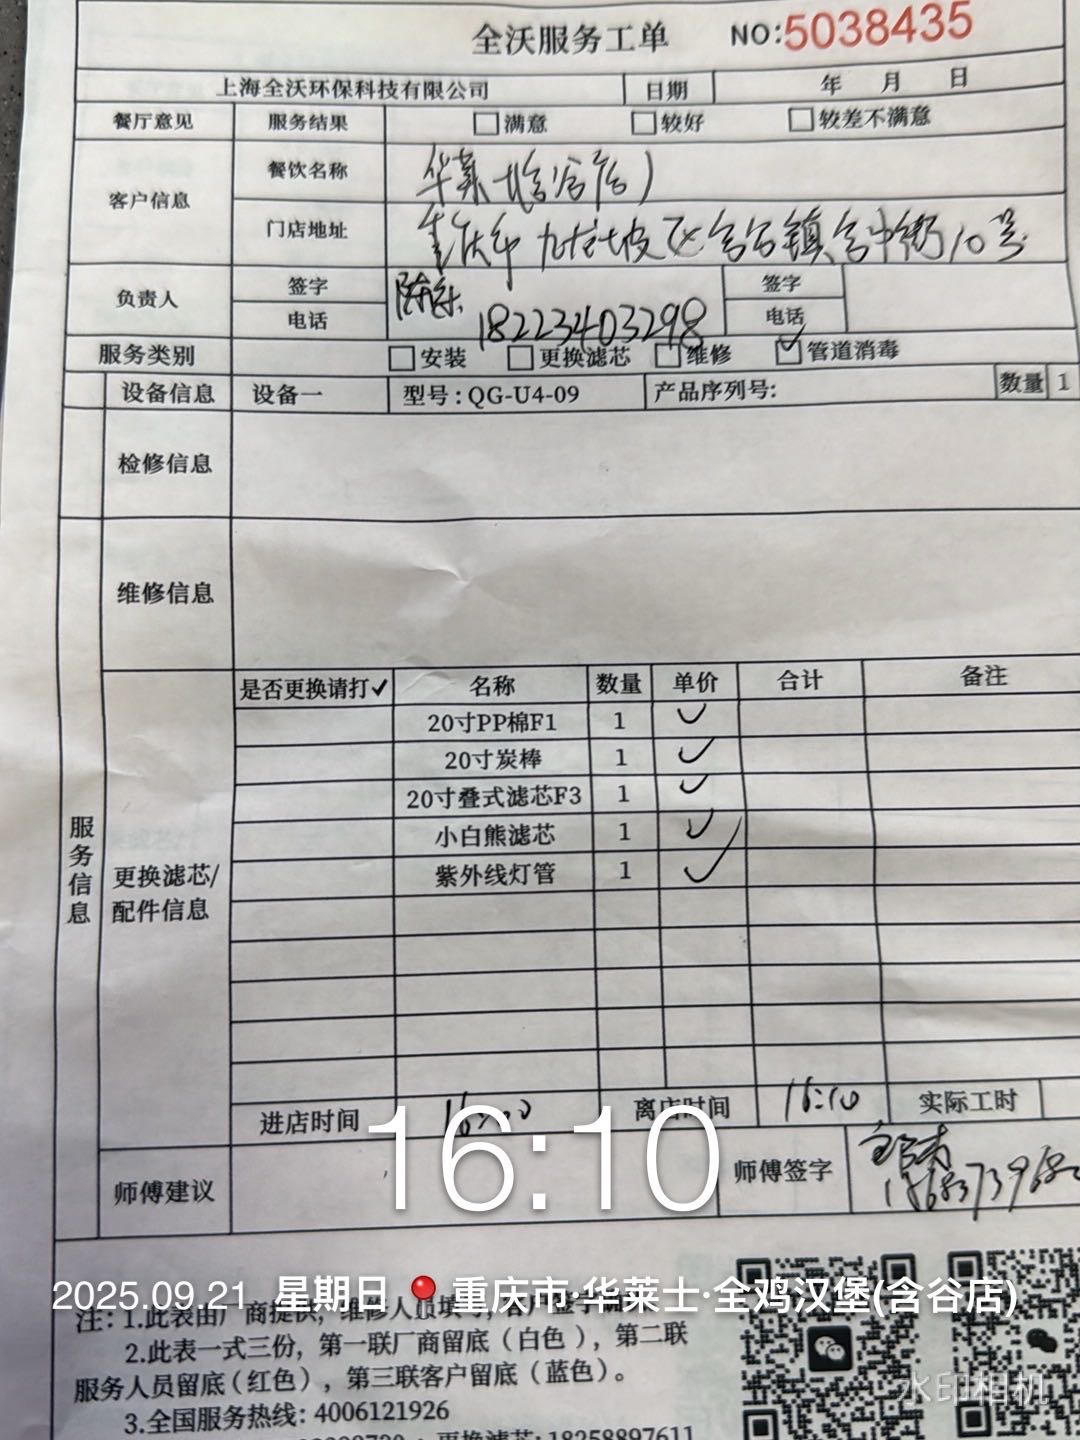 全沃服务工单 NO:5038435
上海全沃环保科技有限公司 日期 年 月 日
餐厅意见 服务结果 □满意 □较好 □较差不满意
客户信息 餐饮名称 华莱士(含谷店)
门店地址 重庆市九龙坡区含谷镇含中街10号
负责人 签字 签字
电话 18223403298 电话
服务类别 □安装 □更换滤芯 □维修 ☑管道消毒
设备信息 设备一 型号:QG-U4-09 产品序列号: 数量 1
检修信息
维修信息
服务信息
更换滤芯/
配件信息
是否更换请打✓ 名称 数量 单价 合计 备注
20寸PP棉F1 1 ✓
20寸炭棒 1 ✓
20寸叠式滤芯F3 1 ✓
小白熊滤芯 1 ✓
紫外线灯管 1 ✓
进店时间 离店时间 16:10 实际工时
16:10
师傅建议 师傅签字
2025.09.21 星期日 重庆市·华莱士·全鸡汉堡(含谷店)
注:1.此表由厂商提供,维修人员填写,客户签字
2.此表一式三份,第一联厂商留底(白色),第二联
服务人员留底(红色),第三联客户留底(蓝色)。
3.全国服务热线:4006121926
更换滤芯:18258897611
水印相机